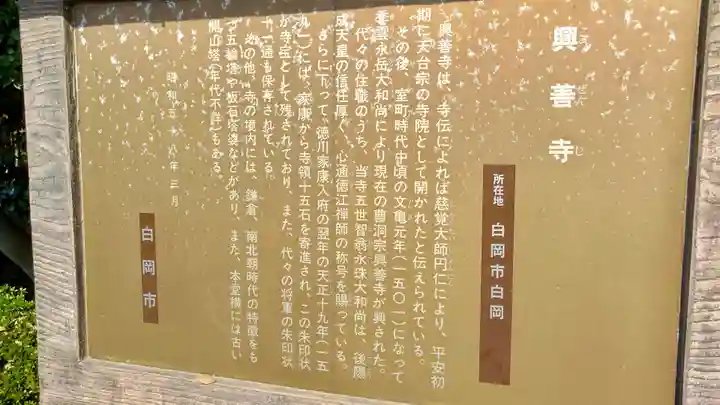 興善寺
こうぜんじ
所在地 白岡市白岡
興善寺は、寺伝によれば慈覚大師円仁により、平安初
期に天台宗の寺院として開かれたと伝えられている。
その後、室町時代中頃の文亀元年(一五〇一)になって
永岳大和尚により現在の曹洞宗興善寺が興された。
代々の住職のうち、当寺五世智翁永珠大和尚は、後陽
成天皇の信任厚く、心通徳江禅師の称号を賜っている。
さらに下って、徳川家康入府の翌年の天正十九年(一五
九一)には、家康から寺領十五石を寄進され、この朱印状
が寺宝として残されており、また、代々の将軍の朱印状
十一通も保存されている。
その他、寺の境内には、鎌倉、南北朝時代の特徴をも
つ五輪塔や板石塔婆などがあり、また、本堂横には古い
開山塔(年代不詳)もある。
昭和五十八年三月
白岡市